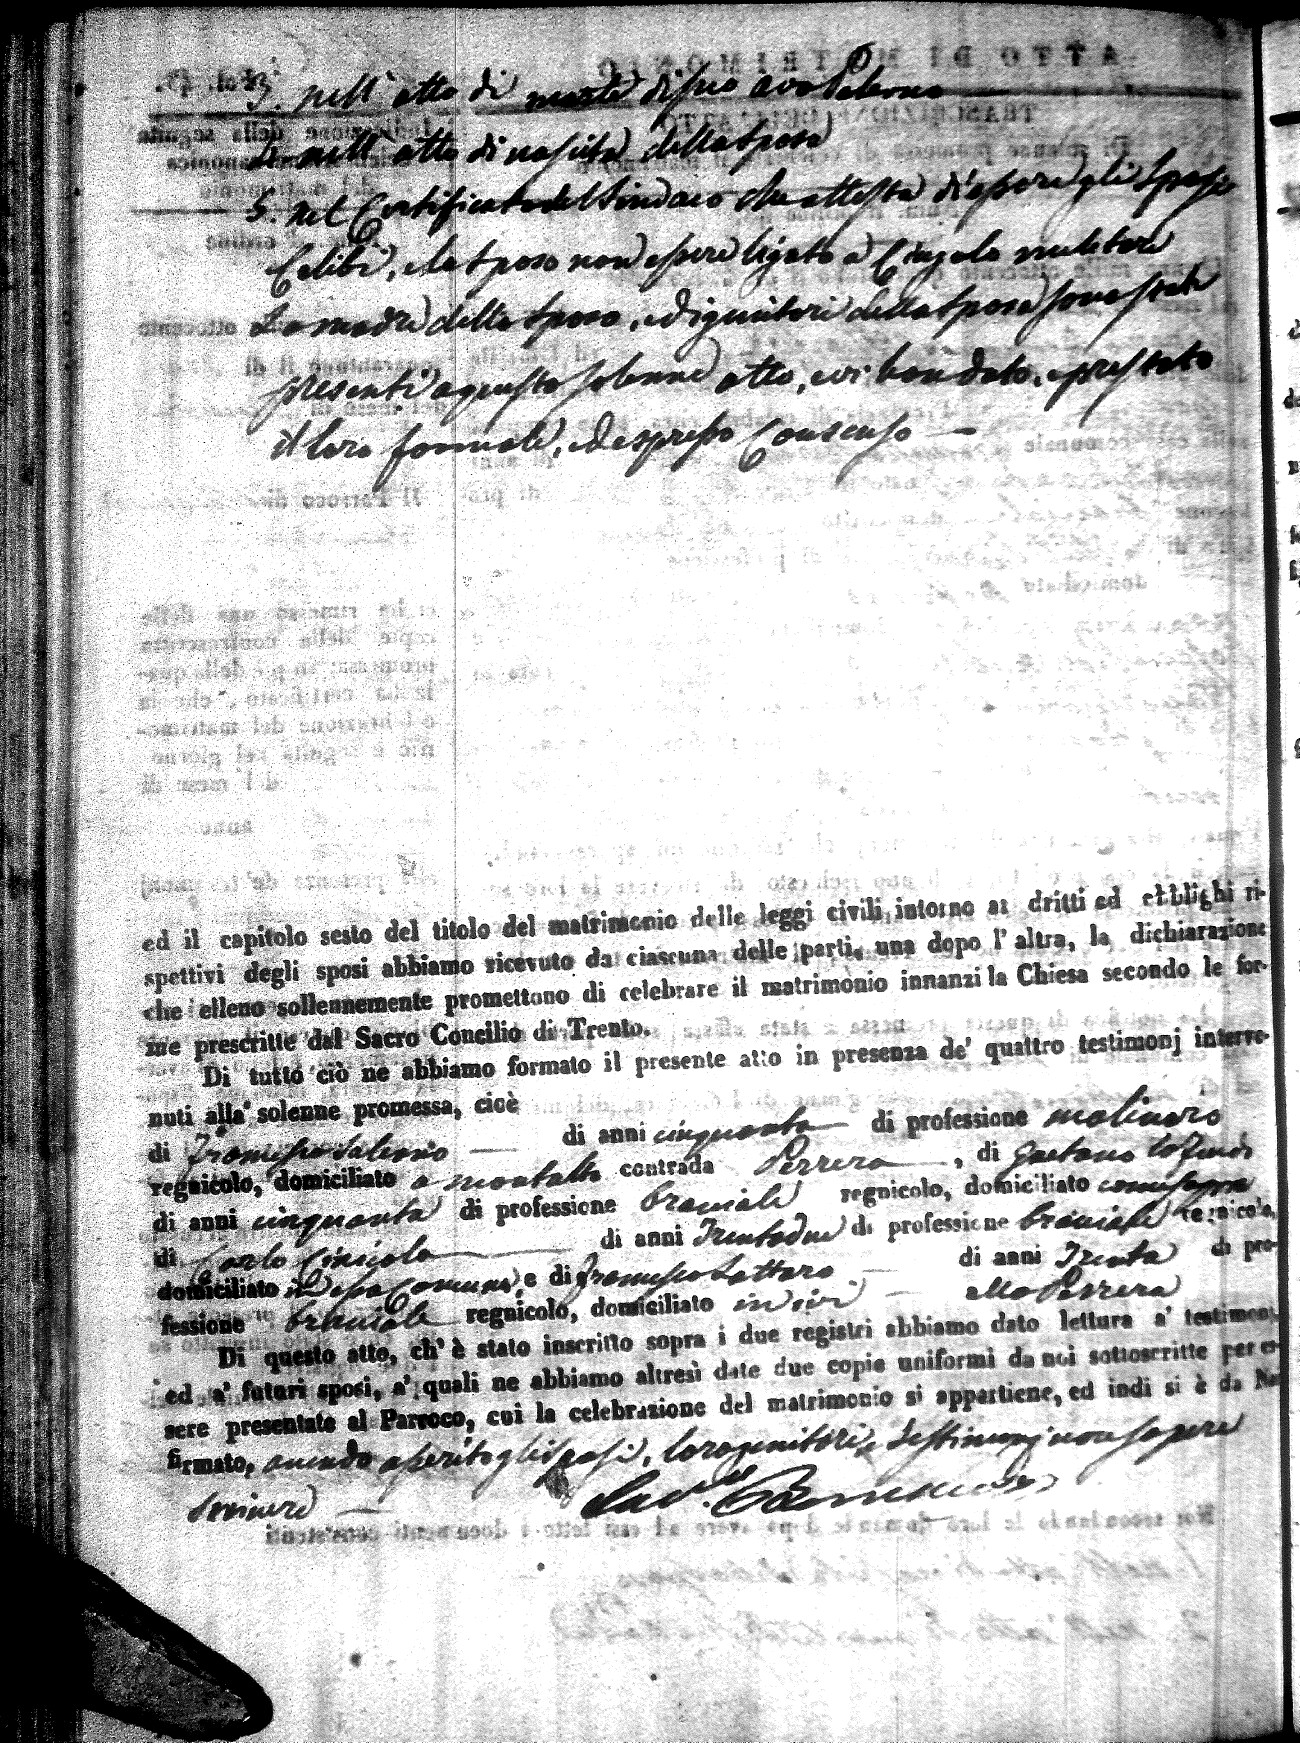 3. nell'atto di morte di suo avo Paterno
4. nell'atto di nascita della sposa
5. nel Certificato del Sindaco che attesta di essere gli Sposi
Celibi, e lo sposo non essere ligato a Cingolo militare
La madre dello sposo, ed i genitori della sposa sono stati
presenti a questo solenne atto, e vi han dato, e prestato
il loro formale, ed espresso Consenso —
ed il capitolo sesto del titolo del matrimonio delle leggi civili, intorno ai dritti ed obblighi ri-
spettivi degli sposi abbiamo ricevuto da ciascuna delle parti, una dopo l'altra, la dichiarazione
che elleno sollennemente promettono di celebrare il matrimonio innanzi la Chiesa secondo le for-
me prescritte dal Sacro Concilio di Trento.
Di tutto ciò ne abbiamo formato il presente atto in presenza de' quattro testimonj interve-
nuti alla solenne promessa, cioè
di Francesco Salerno — di anni cinquanta di professione molinaro
regnicolo, domiciliato a montalto contrada Perrera —, di Gaetano
di anni cinquanta di professione bracciale regnicolo, domiciliato come sopra
di Carlo — di anni Trentadue di professione bracciale regnicolo,
domiciliato in Comune, e di Francesco Sattaro — di anni Trenta di pro-
fessione bracciale regnicolo, domiciliato in ivi — alla Perrera
Di questo atto, ch' è stato inscritto sopra i due registri abbiamo dato lettura a' testimonj,
ed a' futuri sposi, a' quali ne abbiamo altresì date due copie uniformi da noi sottoscritte per es-
sere presentate al Parroco, cui la celebrazione del matrimonio si appartiene, ed indi si è da Noi
firmato, avendo asserito gli sposi, loro genitori, e testimonj non sapere
scrivere —